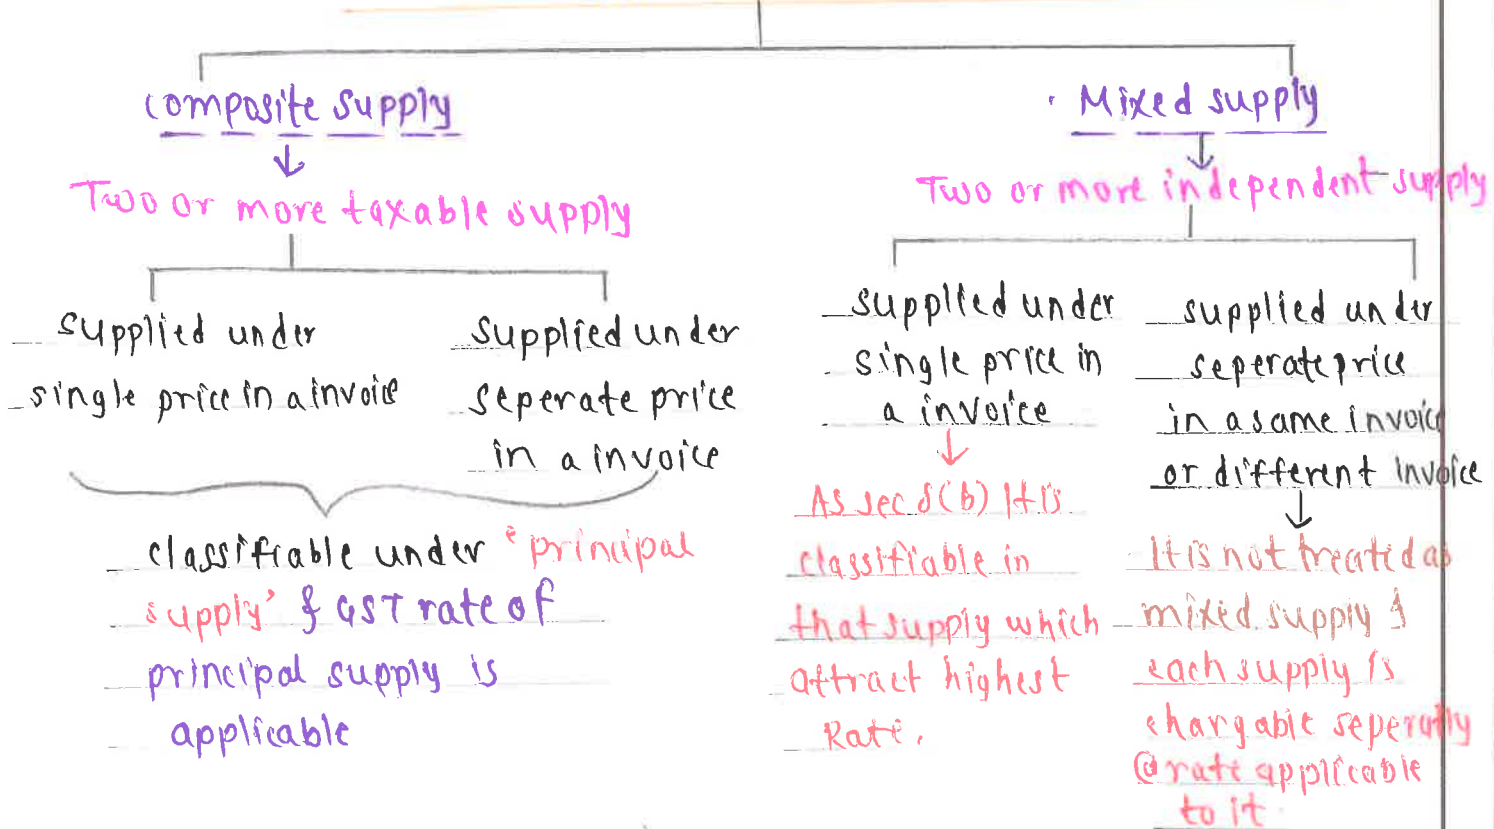 composite supply
Two or more taxable supply
supplied under
single price in a invoice
supplied under
seperate price
in a invoice
classifiable under 'principal
supply' & GST rate of
principal supply is
applicable
Mixed supply
Two or more independent supply
supplied under
single price in
a invoice
As sec 8(b) It is
classifiable in
that supply which
attract highest
Rate.
supplied under
seperate price
in a same invoice
or different invoice
It is not treated as
mixed supply &
each supply is
chargable seperatly
@ rate applicable
to it